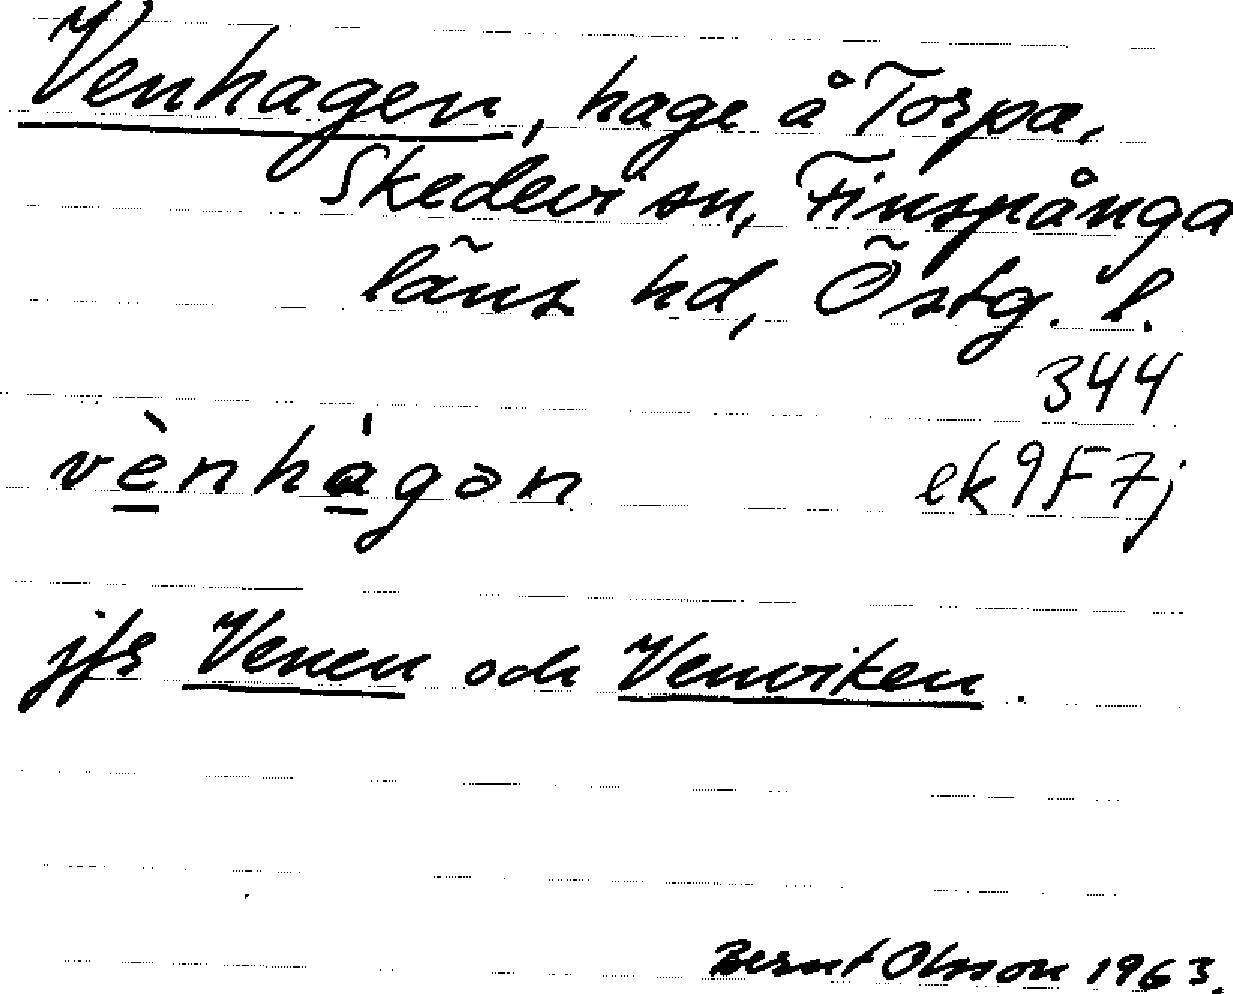 Venhagen, hage å Torpa,
Skedevi sn, Finspånga
läns hd, Östg. l.
344
vènhàgən ek9F7j
jfr Venen och Venviken.
Bernt Olsson 1963.